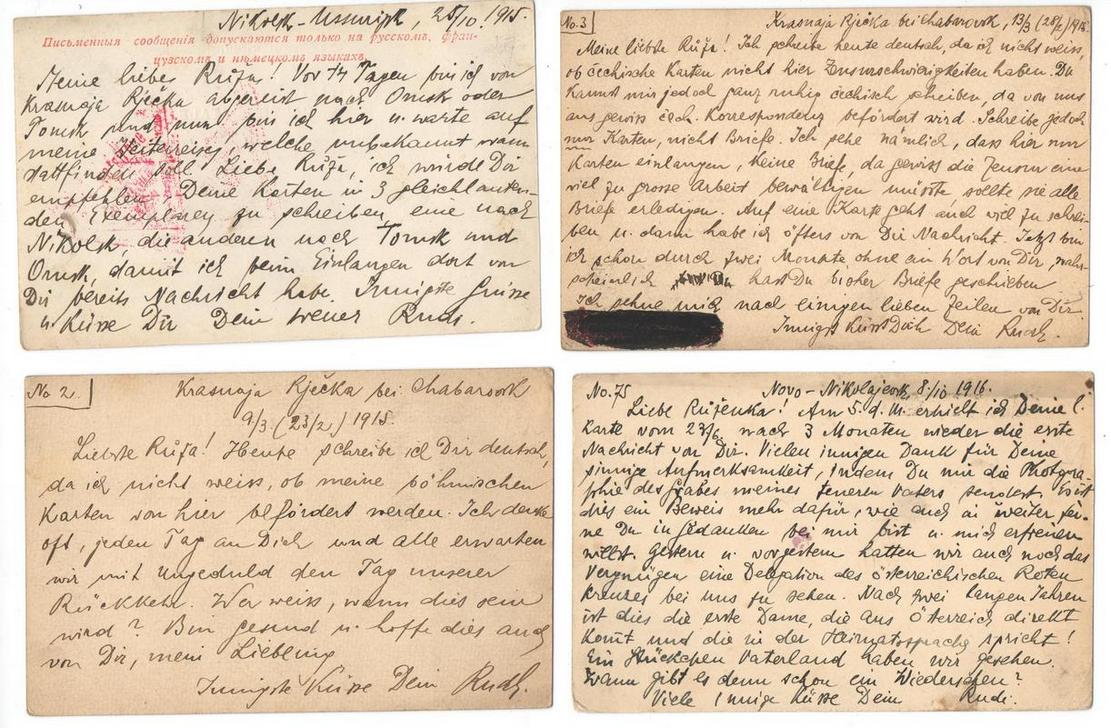 Nikolsk-Ussurijsk, 25/10 1915.
Письменныя сообщенія допускаются только на русскомъ, фран-
цузскомъ и нѣмецкомъ языкахъ.
Meine liebes Růža! Vor 14 Tagen bin ich von
Krasnaja Rječka abgereist nach Omsk oder
Tomsk und nun bin ich hier u. warte auf
meine Weiterreise, welche unbekannt wann
stattfinden soll. Liebe Růža, ich würde Dir
empfehlen Deine Karten in 3 gleichlauten-
den Exemplaren zu schreiben, eine nach
Nikolsk, die anderen nach Tomsk und
Omsk, damit ich beim Einlangen dort von
Dir bereits Nachricht habe. Innigste Grüsse
u. Küsse Dir Dein treuer Rudi.
No. 3
Krasnaja Rječka bei Chabarovsk, 13/3 (28/2) 1915.
Meine liebste Růža! Ich schreibe heute deutsch, da ich nicht weiss,
ob čechische Karten nicht hier Zensurschwierigkeiten haben. Du
kannst mir jedoch ganz ruhig čechisch schreiben, da von uns
aus gewiss čech. Korrespondenz befördert wird. Schreibe jedoch
nur Karten, nicht Briefe. Ich sehe nämlich, dass hier nur
Karten einlangen, keine Briefe, da gewiss die Zensur eine
viel zu grosse Arbeit bewältigen müsste, sollte sie alle
Briefe erledigen. Auf eine Karte geht auch viel zu schrei-
ben u. dann habe ich öfters von Dir Nachricht. Jetzt bin
ich schon durch zwei Monate ohne an Wort von Dir, wahr-
scheinlich hast Du bisher Briefe geschrieben
Ich sehne mich nach einigen lieben Zeilen von Dir.
Innigst küsst Dich Dein Rudi.
No 2.
Krasnaja Rječka bei Chabarovsk
9/3. (23/2) 1915.
Liebste Růža! Heute schreibe ich Dir deutsch,
da ich nicht weiss, ob meine böhmischen
Karten von hier befördert werden. Ich denke
oft, jeden Tag an Dich und alle erwarten
wir mit Ungeduld den Tag unserer
Rückkehr. Wer weiss, wann dies sein
wird? Bin gesund u. hoffe dies auch
von Dir, mein Liebling
Innigste Küsse Dein Rudi.
No. 75
Novo-Nikolajevsk 8./10 1916.
Liebe Růženka! Am 5. d. M. erhielt ich Deine l.
Karte vom 23/6 nach 3 Monaten wieder die erste
Nachricht von Dir. Vielen innigen Dank für Deine
sinnige Aufmerksamkeit, indem Du mir die Photogra-
phie des Grabes meines teueren Vaters sendest. Es ist
dies ein Beweis mehr dafür, wie auch in weiter Fer-
ne Du in Gedanken bei mir bist u. mich erfreuen
willst. Gestern u. vorgestern hatten wir auch noch das
Vergnügen eine Delegation des österreichischen Roten
Kreuzes bei uns zu sehen. Nach zwei langen Jahren
ist dies die erste Dame, die aus Österreich direkt
kommt und die in der Heimatssprache spricht!
Ein Stückchen Vaterland haben wir gesehen.
Wann gibt es denn schon ein Wiedersehen?
Viele innige Küsse Dein Rudi.